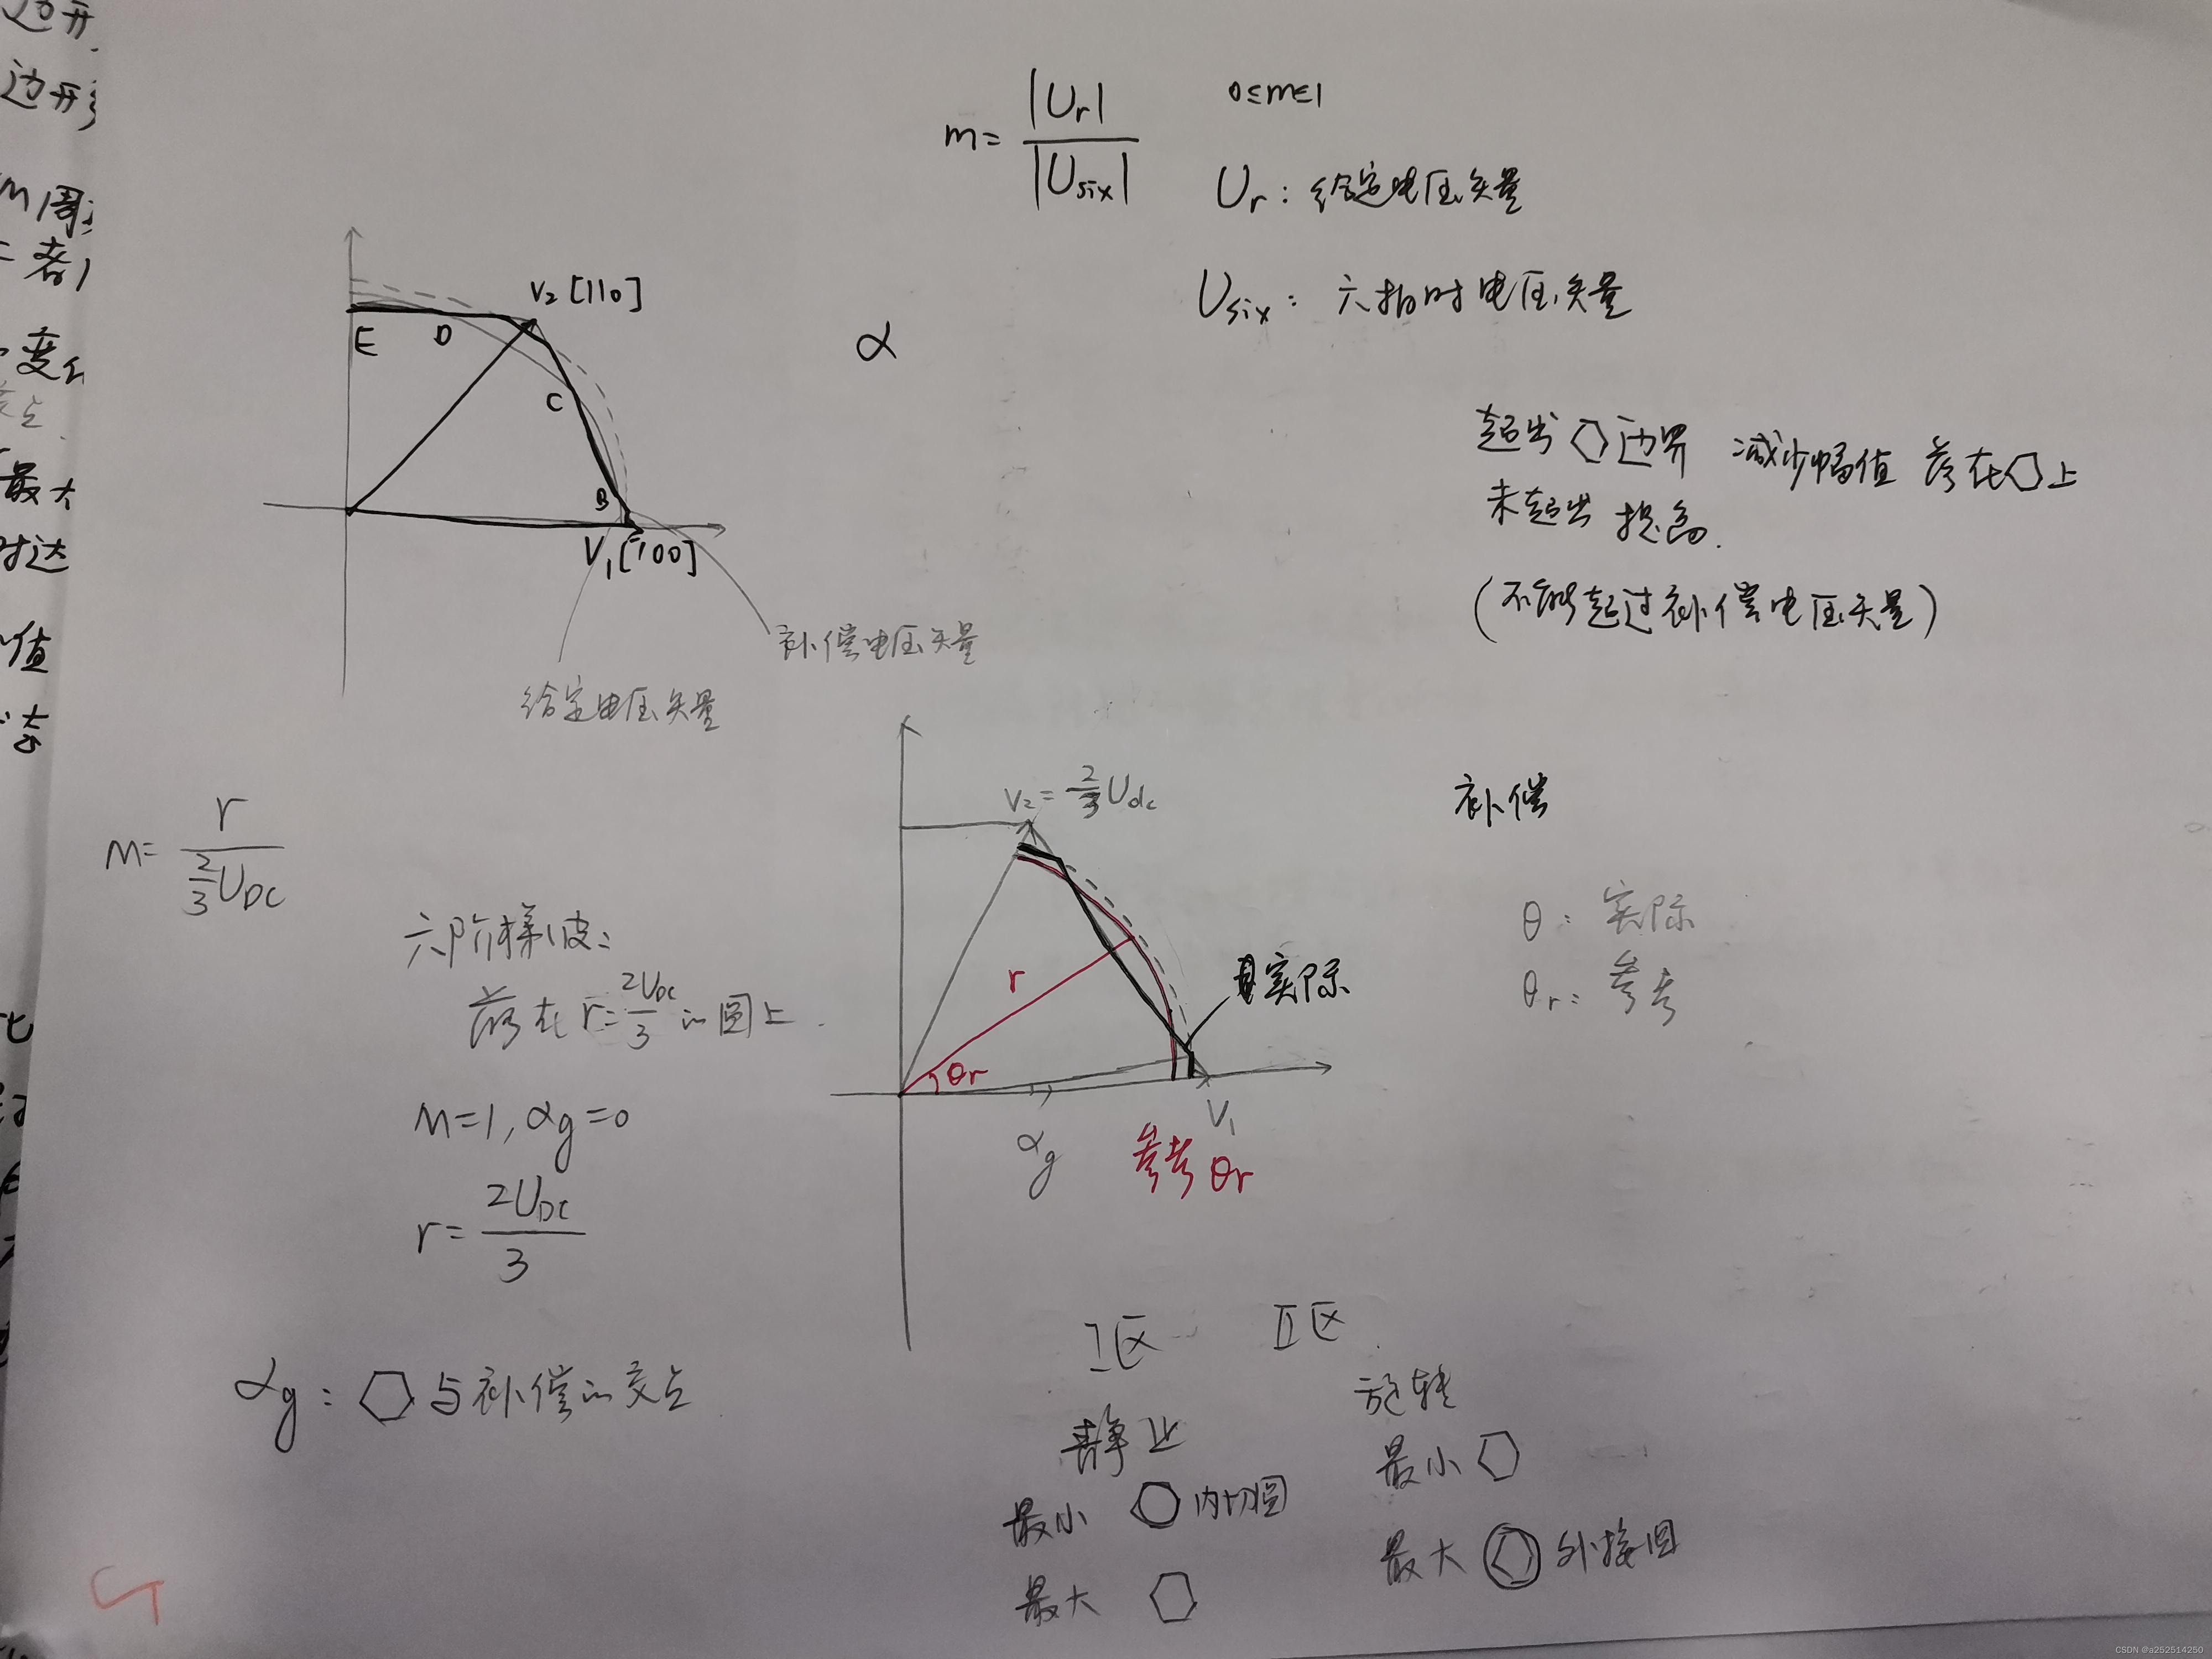 边开
边形
m周
二者
变
点
最大
时达
值
去
m= |Ur| / |Usix|
0≤m≤1
Ur: 给定电压矢量
Usix: 六拍时电压矢量
V2 [110]
E
D
C
B
V1 [100]
α
补偿电压矢量
给定电压矢量
超出⬡边界 减少幅值 落在⬡上
未超出 提高.
(不能超过补偿电压矢量)
m= r / (2/3 UDC)
六阶梯波:
落在 r= 2UDC/3 的圆上.
m=1, αg=0
r= 2UDC/3
αg: ⬡与补偿的交点
V2= 2/3 Udc
r
θr
实际
V1
αg
参考 θr
补偿
θ: 实际
θr: 参考
I区
II区.
静止
旋转
最小 ⬡内切圆
最小 ⬡
最大 ⬡
最大 ⬡外接圆
CSDN @a252514250